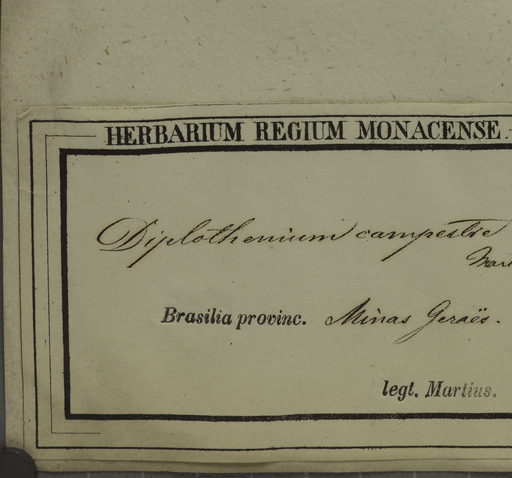 HERBARIUM REGIUM MONACENSE.
Diplothenium campestre
Mart
Brasilia provinc. Minas Geraës.
legt. Martius.